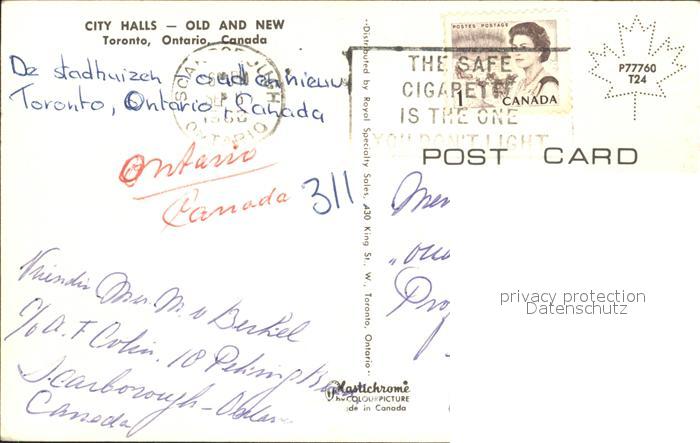 CITY HALLS — OLD AND NEW
Toronto, Ontario, Canada
De stadhuizen oud en nieuw
Toronto, Ontario - Canada
ONTARIO
POSTES POSTAGE
1 CANADA
THE SAFE
CIGARETTE
IS THE ONE
YOU DON'T LIGHT
P77760
T24
POST CARD
Ontario
Canada
311
Distributed by Royal Specialty Sales, 430 King St., W., Toronto, Ontario
Prof
privacy protection
Datenschutz
Vriendin Mevr. M. v Berkel
c/o A. F. Colin. 18
Scarborough -
Canada
Plastichrome
by COLOURPICTURE
de in Canada